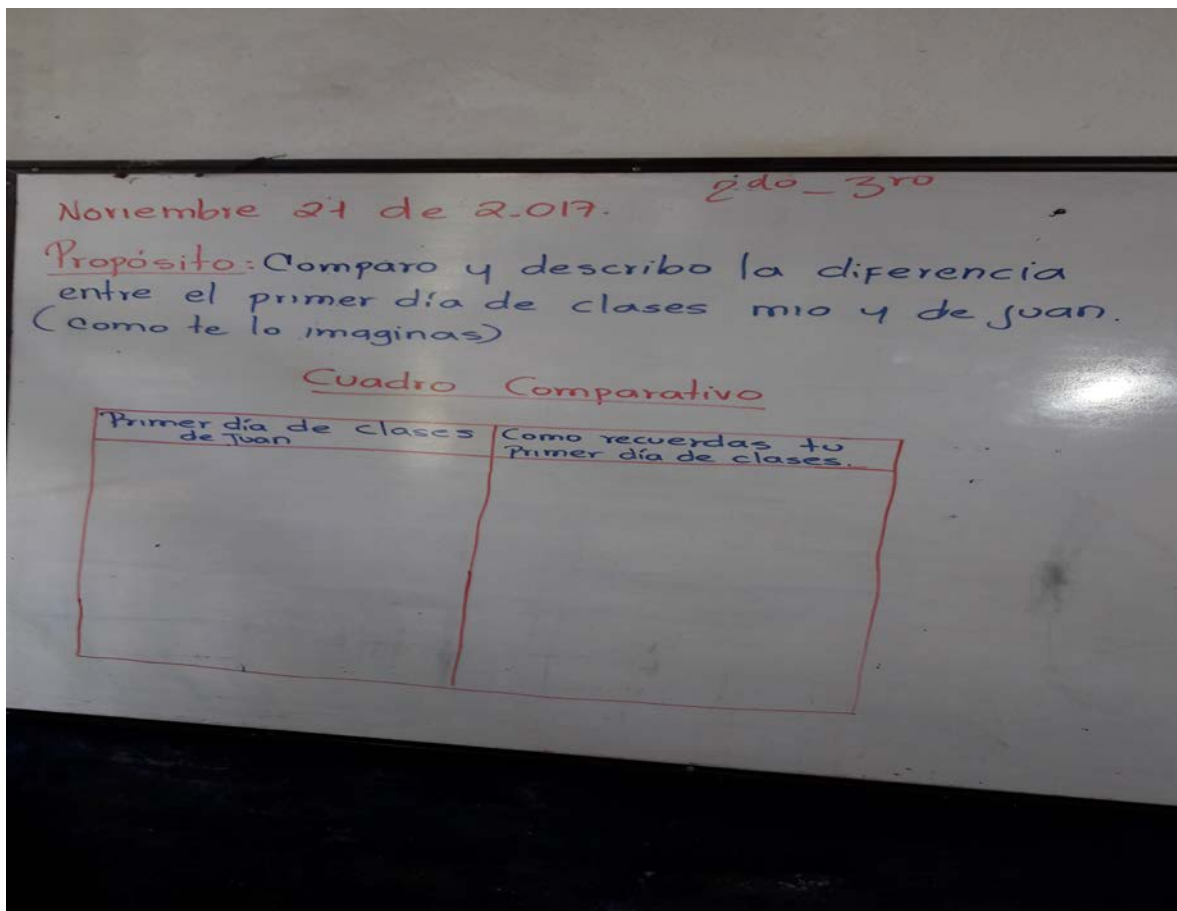 2do - 3ro
Noviembre 21 de 2.017.
Propósito: Comparo y describo la diferencia
entre el primer día de clases mio y de Juan.
(como te lo imaginas)
Cuadro Comparativo
Primer día de clases
de Juan
Como recuerdas tu
Primer día de clases.